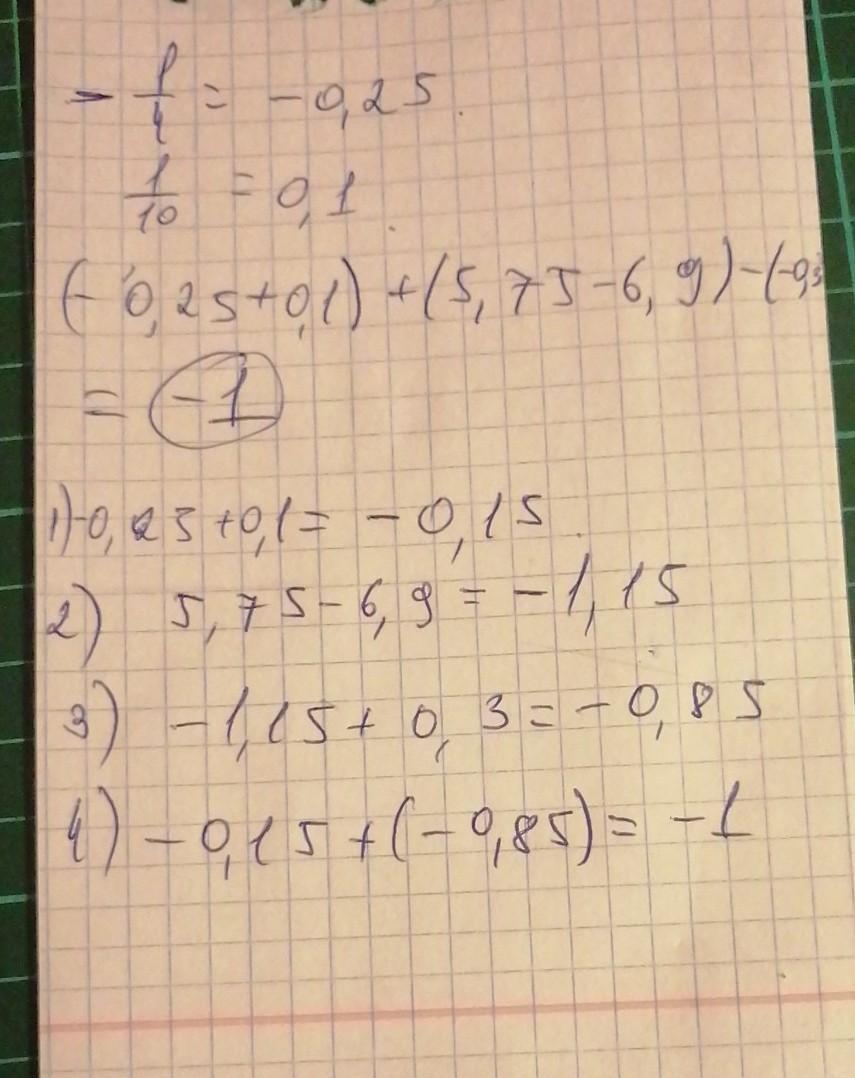 - 1/4 = -0,25.
1/10 = 0,1.
(-0,25+0,1)+(5,75-6,9)-(-0,3
= -1
1) -0,25+0,1= -0,15.
2) 5,75-6,9 = -1,15
3) -1,15+0,3=-0,85
4) -0,15+(-0,85)= -1